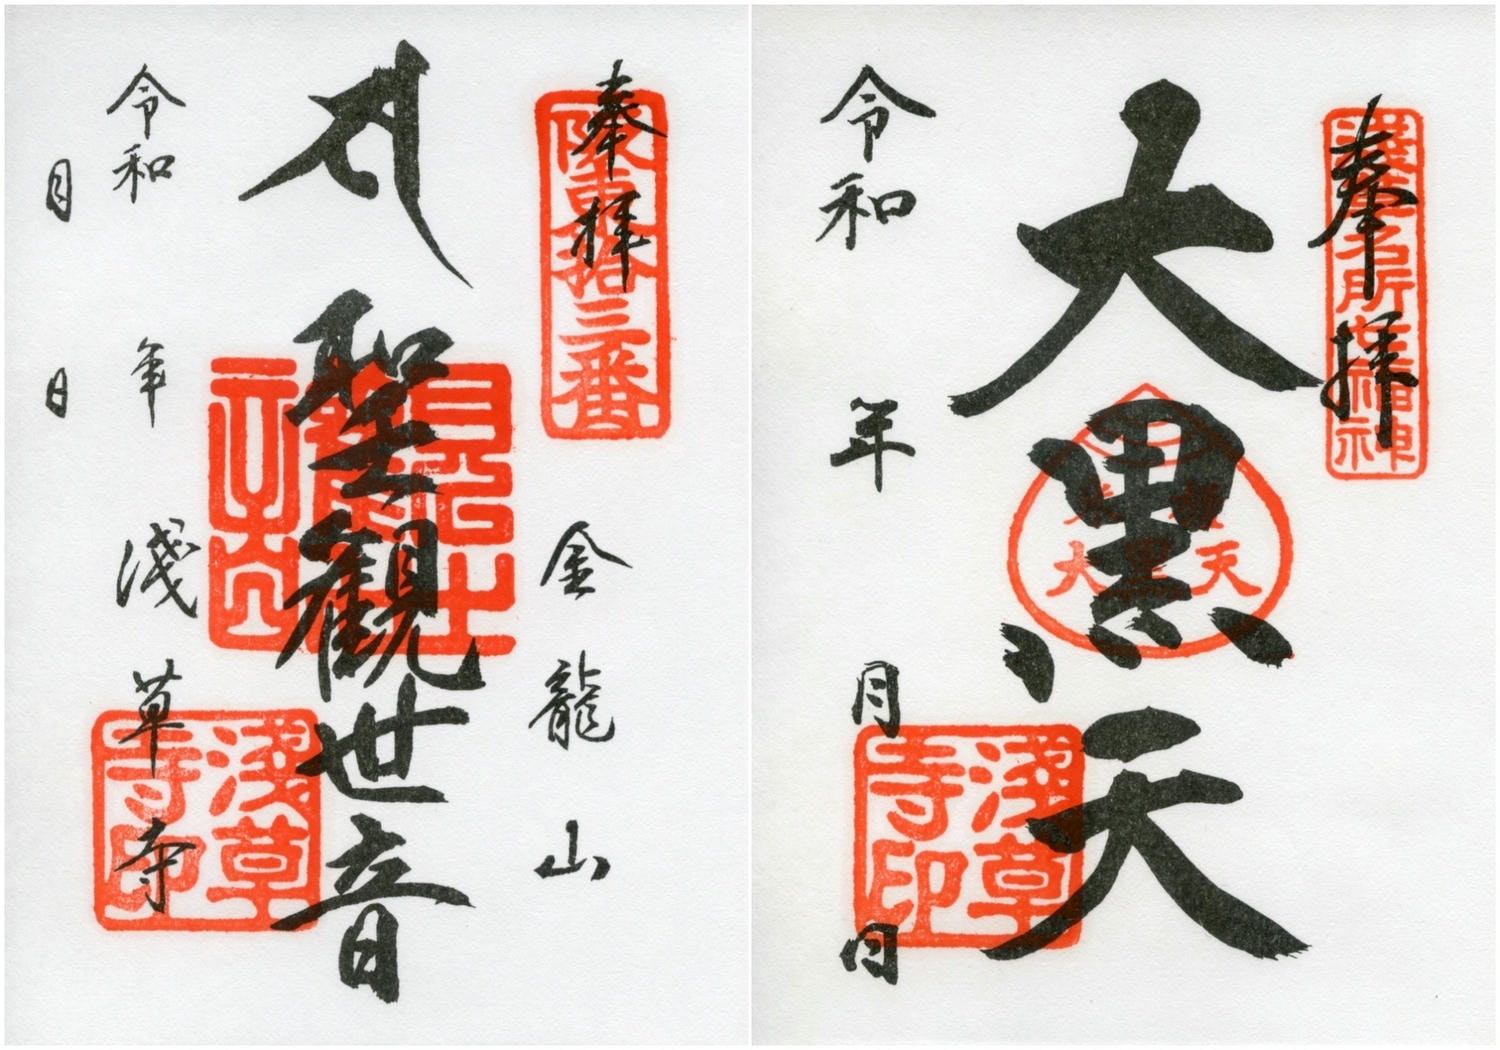 奉拝
坂東拾三番
金龍山
聖観世音
令和 年
月 日
浅草寺
浅草
寺印
奉拝
浅草名所七福神
大黒天
大黒天
令和 年 月 日
浅草
寺印